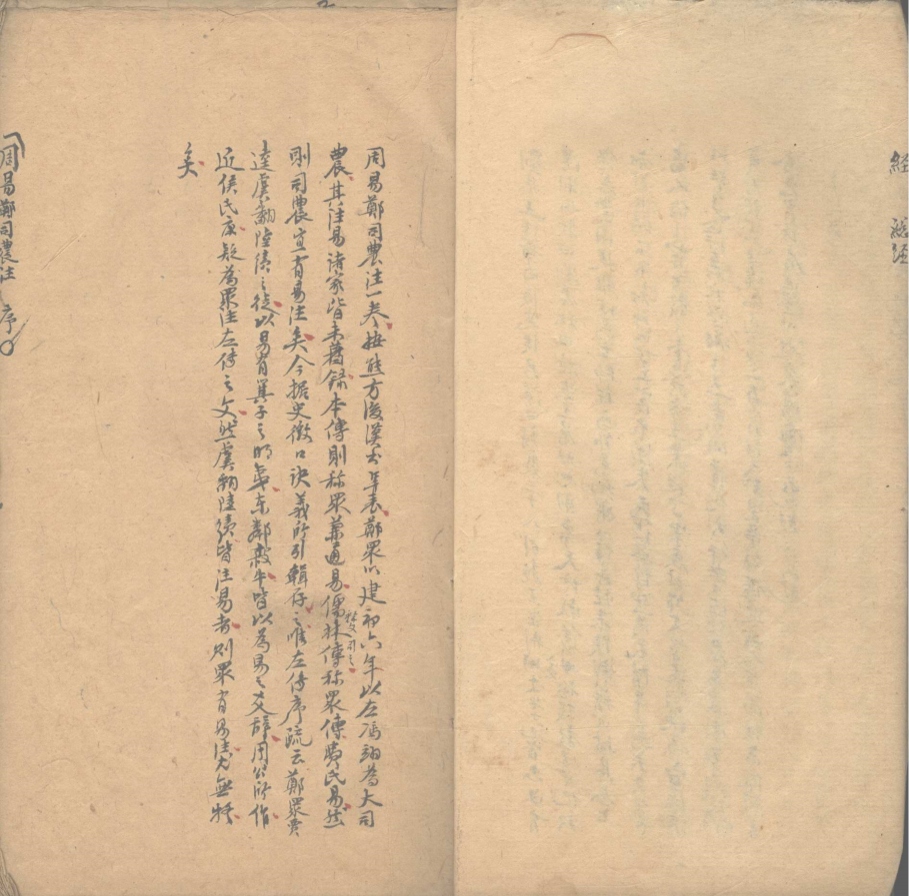 経 総経
周易鄭司農注一卷按熊方後漢書年表鄭眾以建初六年以左馮翊為大司
農其注易諸家皆未著錄本傳則称眾兼通易儒林傳称眾傳費氏易然
則司農宜有易注矣今据史徵口訣義所引輯存之唯左傳序疏云鄭眾賈
逵虞翻陸績之徒以易有箕子之明夷東鄰殺牛皆以為易之爻辭周公所作
近侯氏康疑為眾注左傳之文然虞翻陸績皆注易者則眾有易注尤無疑
矣
周易鄭司農注 序